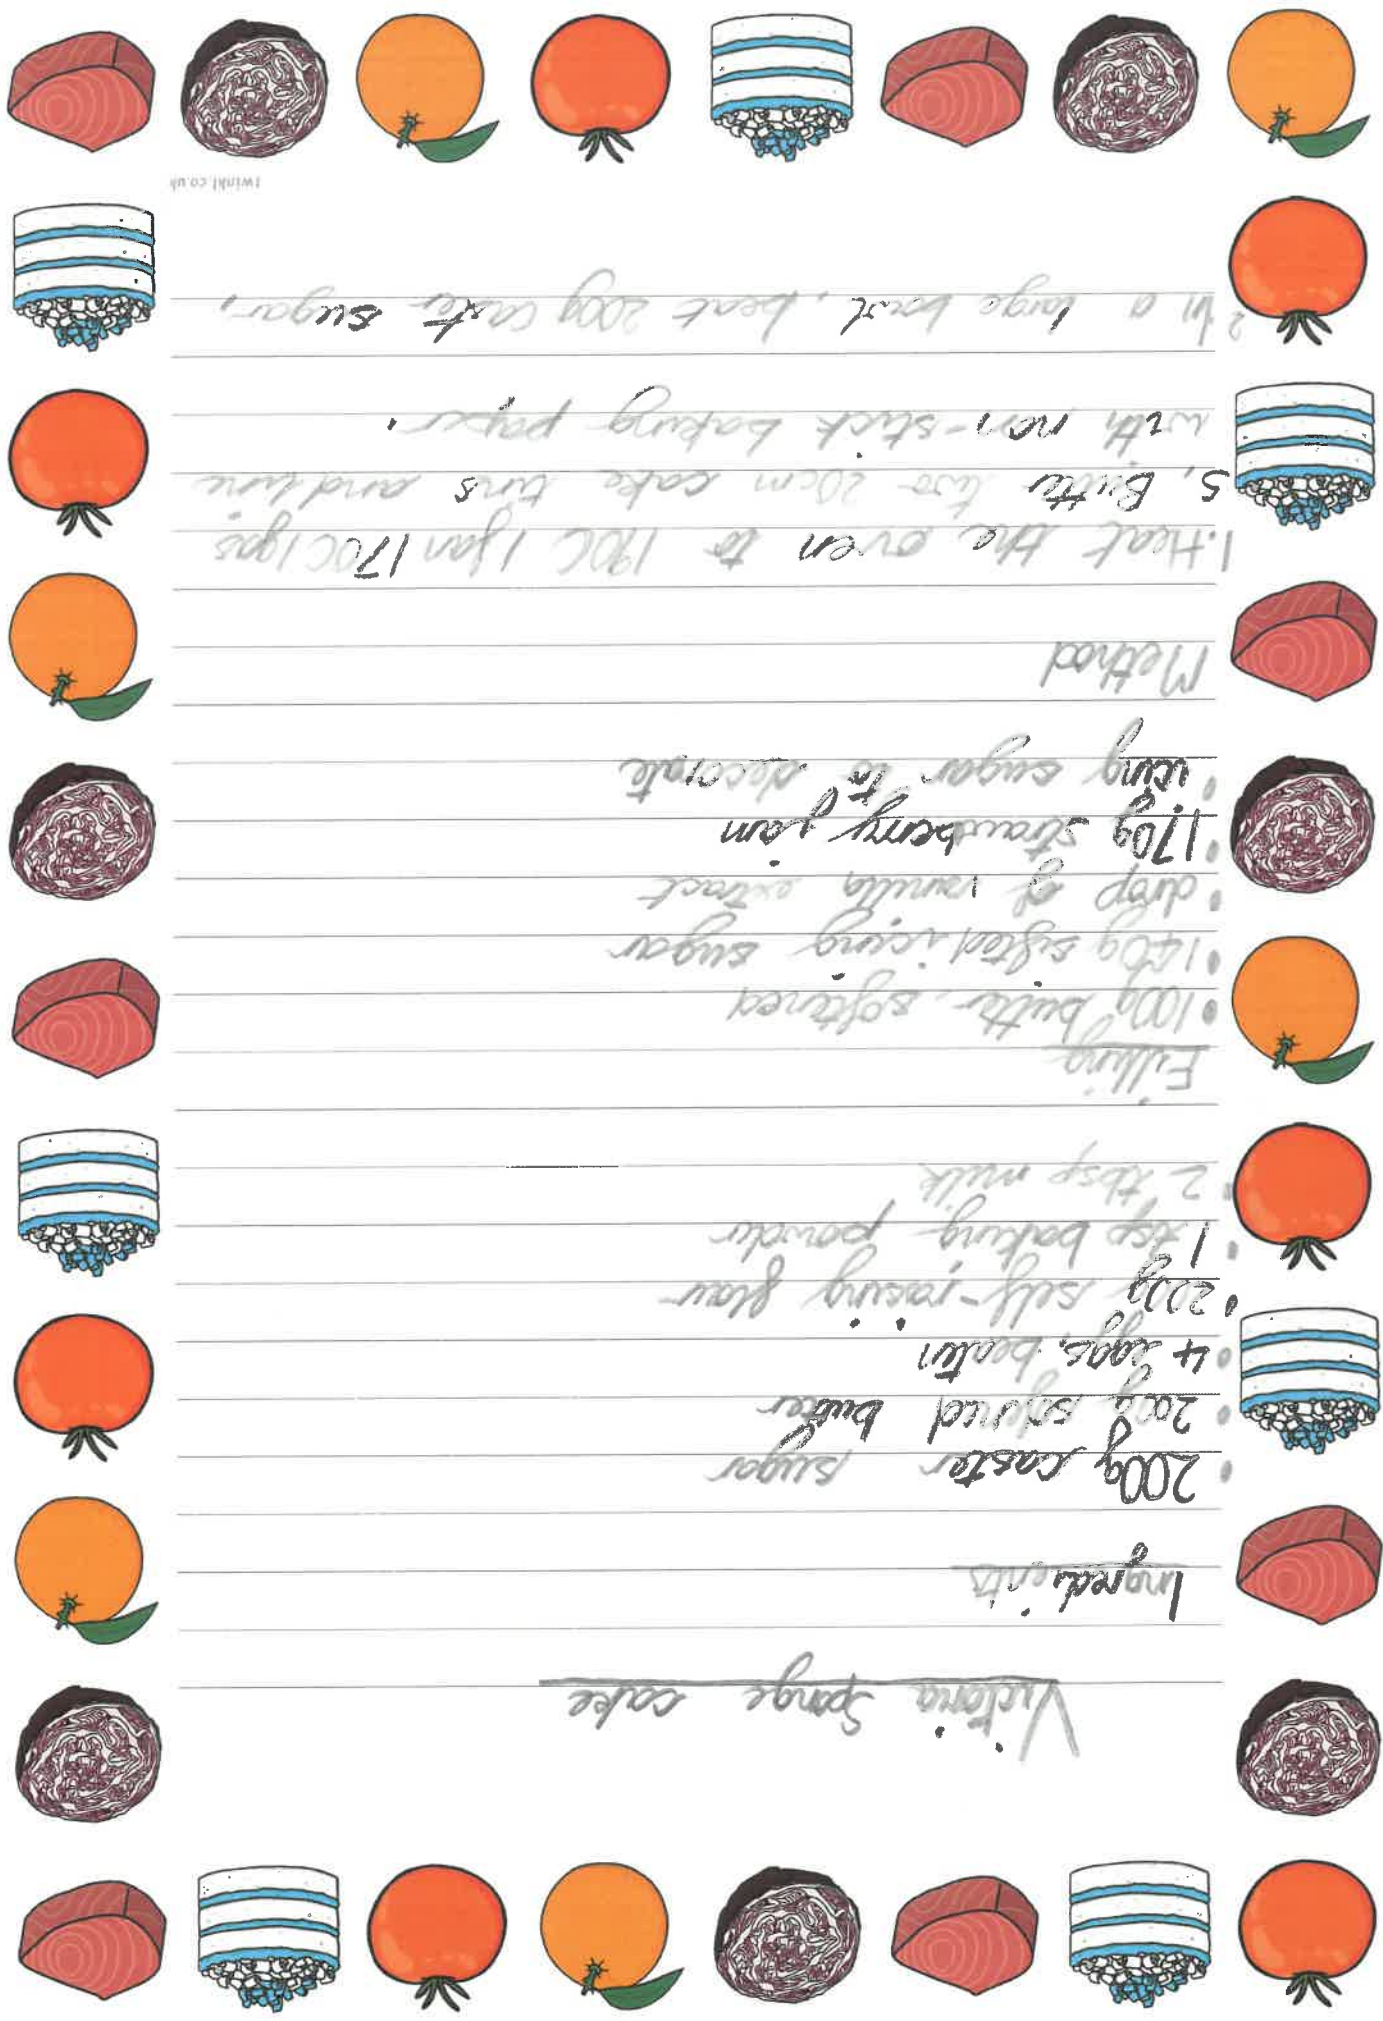 Victoria Sponge cake
Ingredients
• 200g caster sugar
• 200g softened butter
• 4 eggs, beaten
• 200g self-raising flour
• 1 tsp baking powder
• 2 tbsp milk
Filling
• 100g butter, softened
• 140g sifted icing sugar
• drop of vanilla extract
• 170g strawberry jam
• icing sugar to decorate
Method
1. Heat the oven to 190C / fan 170C / gas
5, Butter two 20cm cake tins and line
with non-stick baking paper.
2 In a large bowl, beat 200g caster sugar,
twinkl.co.uk